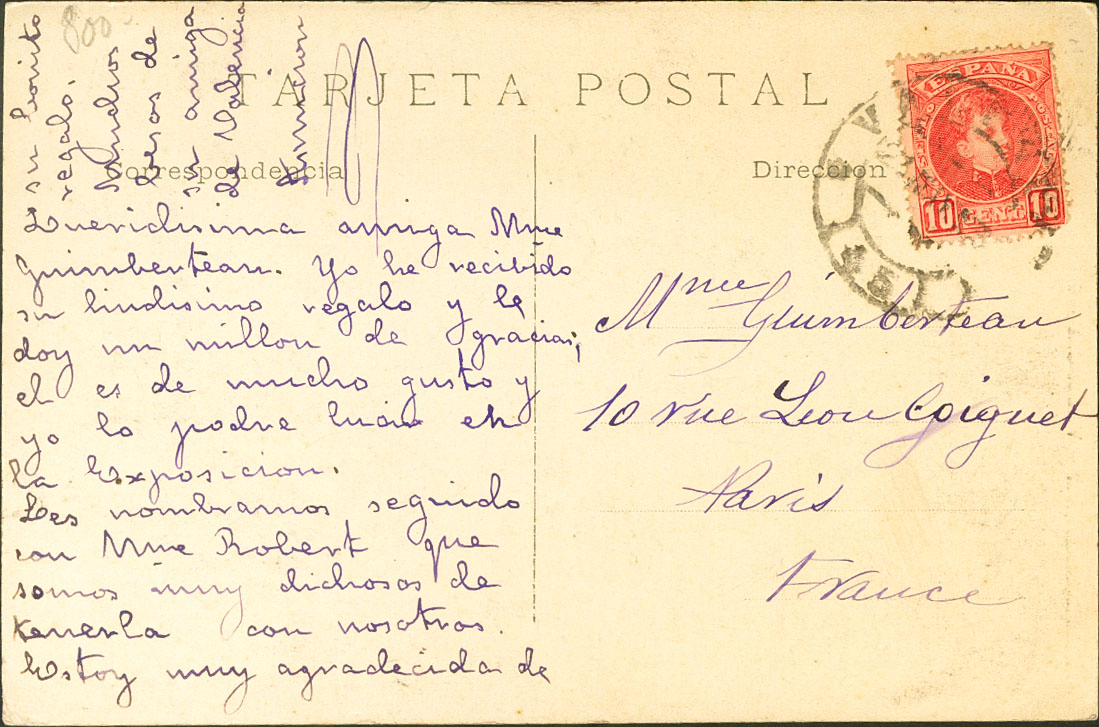 TARJETA POSTAL
Correspondencia
Dirección
800
ESPAÑA
10 CENT. 10
Queridisima amiga Mme
Guimberteau. Yo he recibido
su lindisimo regalo y le
doy un millon de gracias;
el es de mucho gusto y
yo lo podre lucir en
la Exposicion.
Les nombramos seguido
con Mme Robert que
somos muy dichosos de
tenerla con nosotros.
Estoy muy agradecida de
su bonito
regalo.
Muchos
besos de
su amiga
de Valencia
Mme Guimberteau
10 rue Leon Cogniet
Paris
France